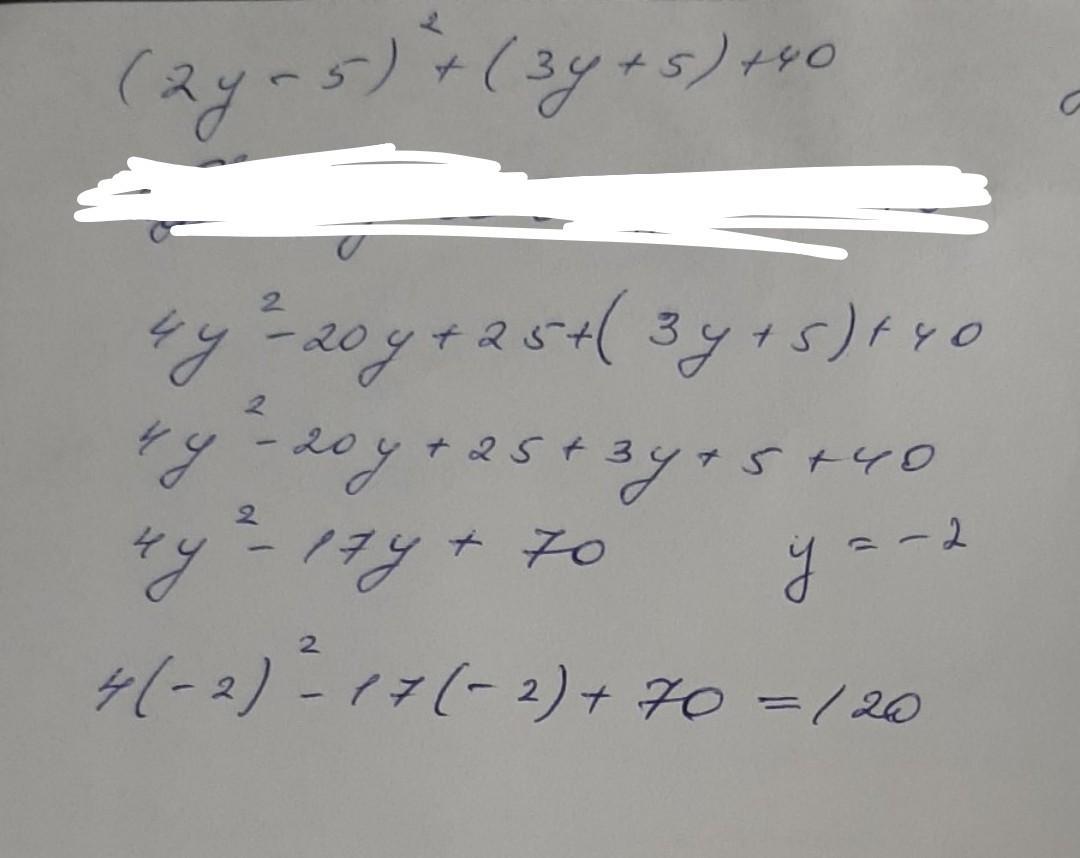 (2y - 5)² + (3y + 5) + 40
4y² - 20y + 25 + (3y + 5) + 40
4y² - 20y + 25 + 3y + 5 + 40
4y² - 17y + 70 y = -2
4(-2)² - 17(-2) + 70 = 120